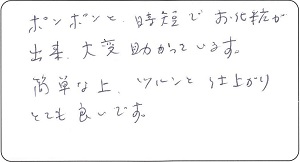 ポンポンと、時短でお化粧が
出来、大変助かっています。
簡単な上、ツルンと仕上がり
とても良いです。